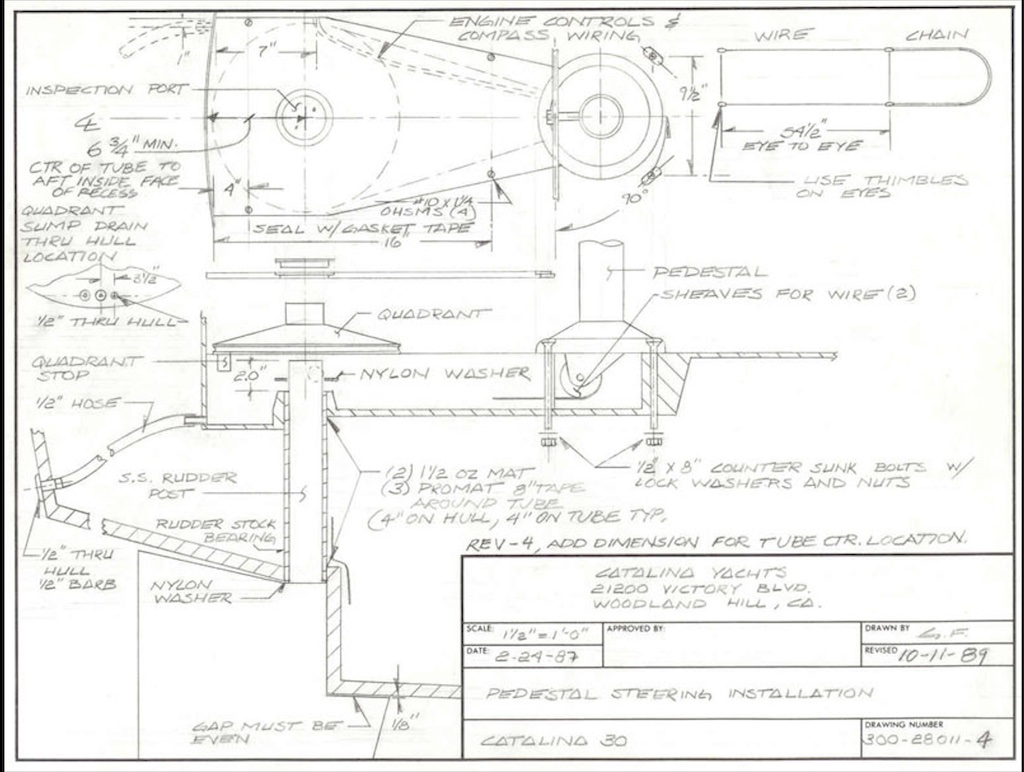 ENGINE CONTROLS &
COMPASS WIRING
WIRE
CHAIN
1"
7"
9½"
INSPECTION PORT
℄
6 ¾" MIN.
CTR OF TUBE TO
AFT INSIDE FACE
OF RECESS
4"
54½"
EYE TO EYE
USE THIMBLES
ON EYES
90°
#10 x 1¼
OHSMS (4)
SEAL W/ GASKET TAPE
16"
QUADRANT
SUMP DRAIN
THRU HULL
LOCATION
3½"
½" THRU HULL
PEDESTAL
SHEAVES FOR WIRE (2)
QUADRANT
QUADRANT
STOP
2.0"
NYLON WASHER
½" HOSE
S.S. RUDDER
POST
(2) 1½ OZ MAT
(3) PROMAT 8" TAPE
AROUND TUBE
(4" ON HULL, 4" ON TUBE TYP.
½ x 8" COUNTER SUNK BOLTS W/
LOCK WASHERS AND NUTS
RUDDER STOCK
BEARING
½" THRU
HULL
½" BARB
NYLON
WASHER
REV-4, ADD DIMENSION FOR TUBE CTR. LOCATION.
GAP MUST BE
EVEN
⅛"
CATALINA YACHTS
21200 VICTORY BLVD.
WOODLAND HILL, CA.
SCALE: 1½" = 1'-0"
APPROVED BY:
DRAWN BY G.F.
DATE: 2-24-87
REVISED 10-11-89
PEDESTAL STEERING INSTALLATION
CATALINA 30
DRAWING NUMBER
300-28011-4